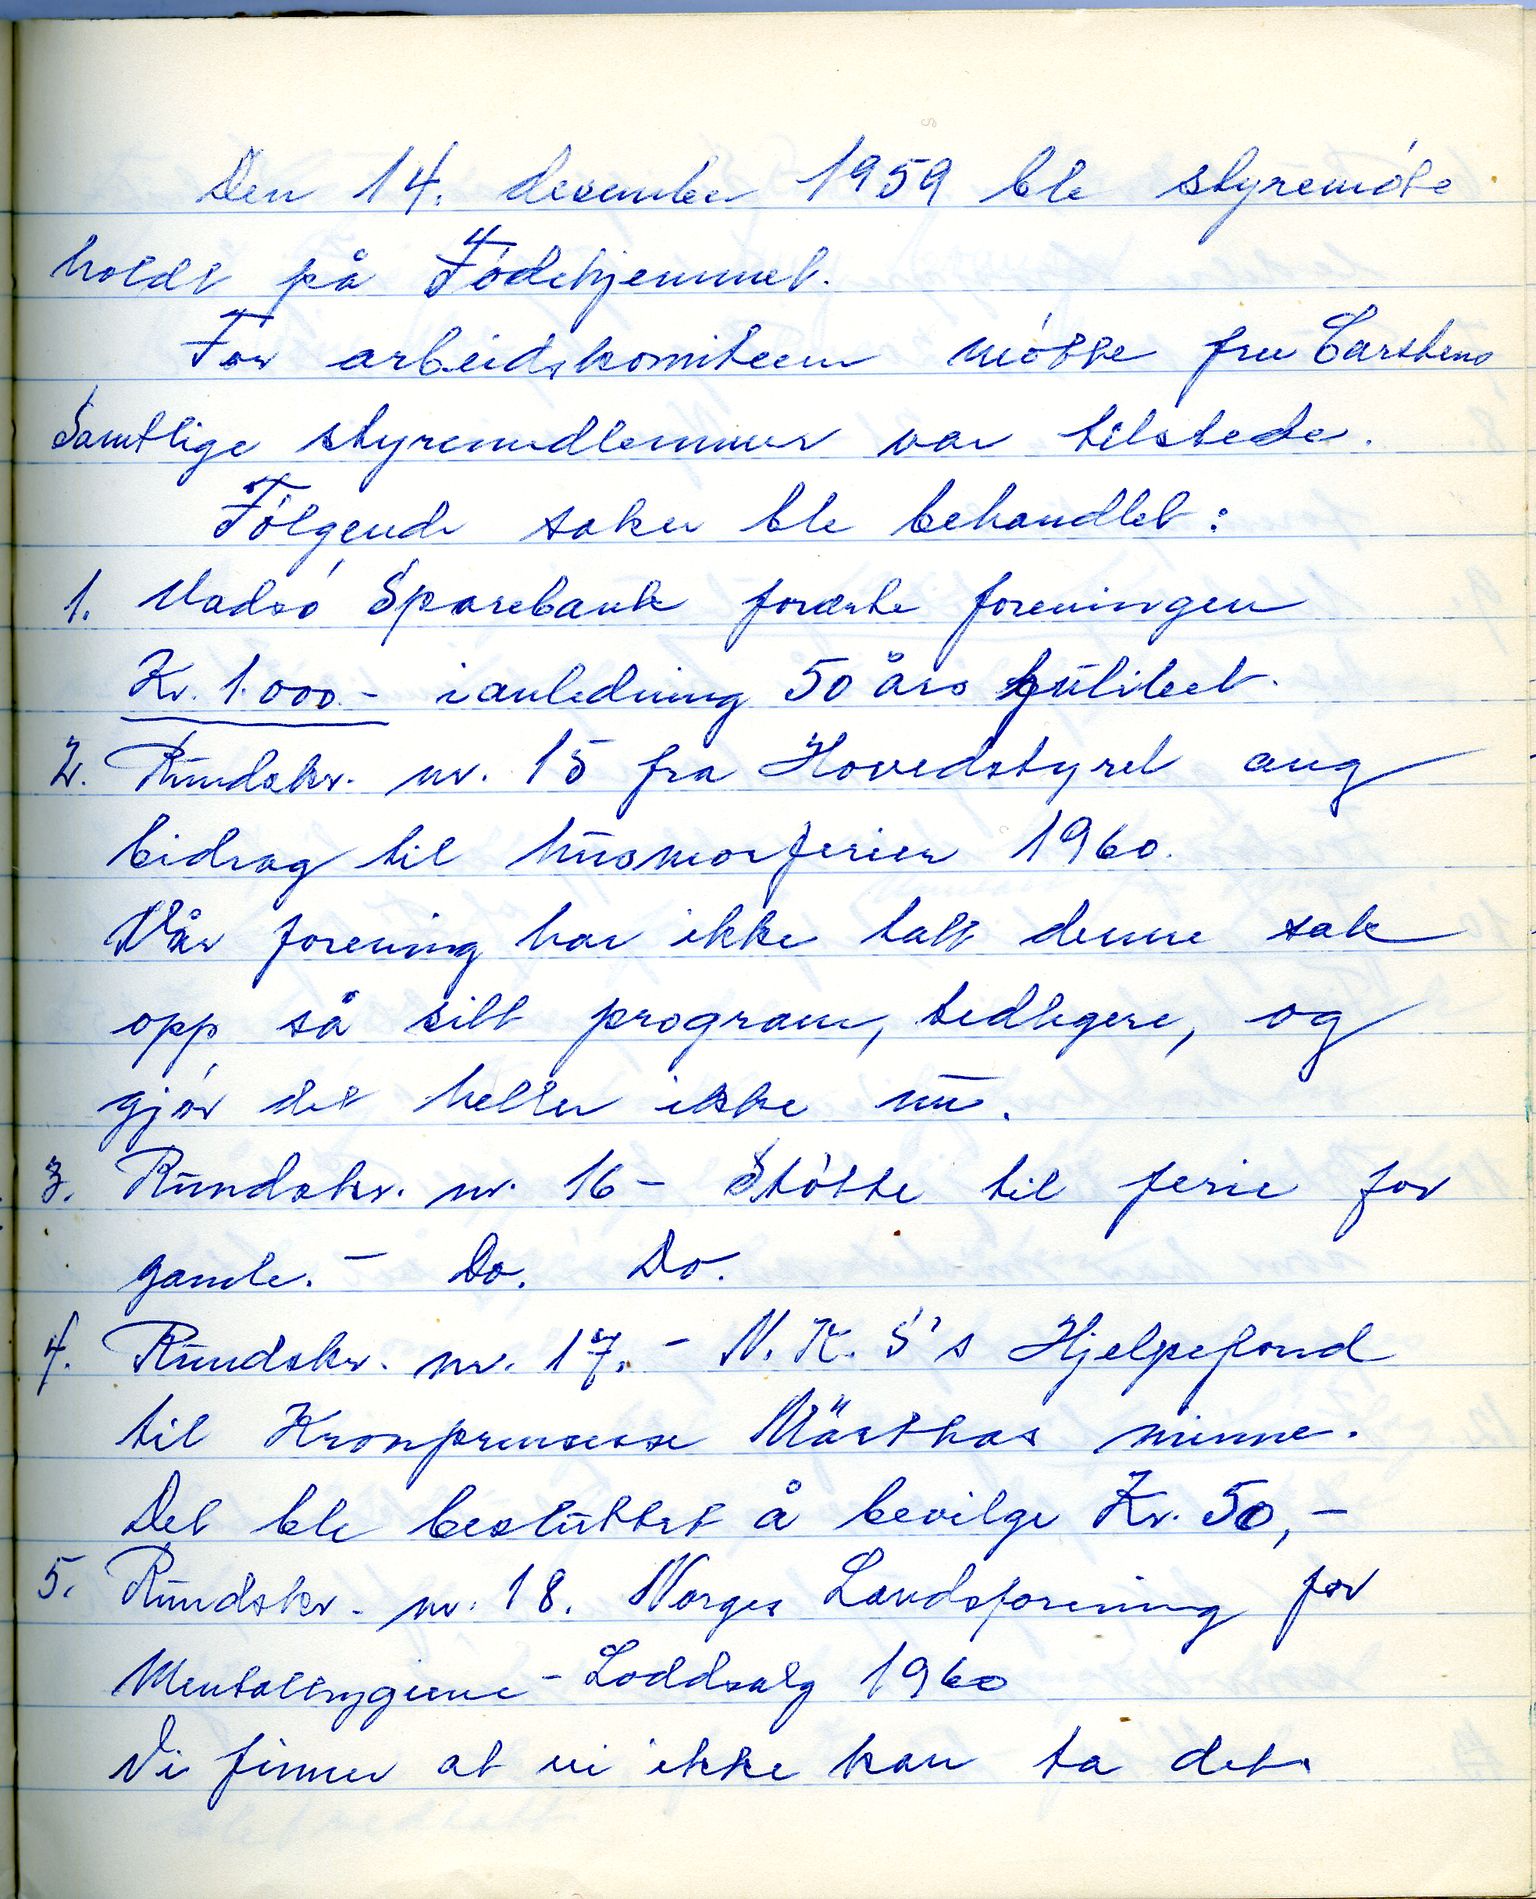 Den 14. desember 1959 ble styremöte
holdt på Födehjemmet.
For arbeidskomiteen mötte fru Carstens
Samtlige styremedlemmer var tilstede.
Fölgende saker ble behandlet:
1. Vadsö Sparebank forærte foreningen
Kr. 1.000.- i anledning 50 års jubileet.
2. Rundskr. nr. 15 fra Hovedstyret ang
bidrag til husmorferien 1960.
Vår forening har ikke tatt denne sak
opp så sitt program, tedligere, og
gjör det heller ikke nu.
3. Rundskr. nr. 16 - Stötte til ferie for
gamle. - Do. Do.
4. Rundskr. nr. 17. - N.K.S's Hjelpefond
til Kronprinsesse Märthas minne.
Det ble besluttet å bevilge Kr. 50,-
5. Rundskr. nr. 18. Norges Landsforening for
Mentalhygiene - Loddsalg 1960
Vi finner at vi ikke kan ta det